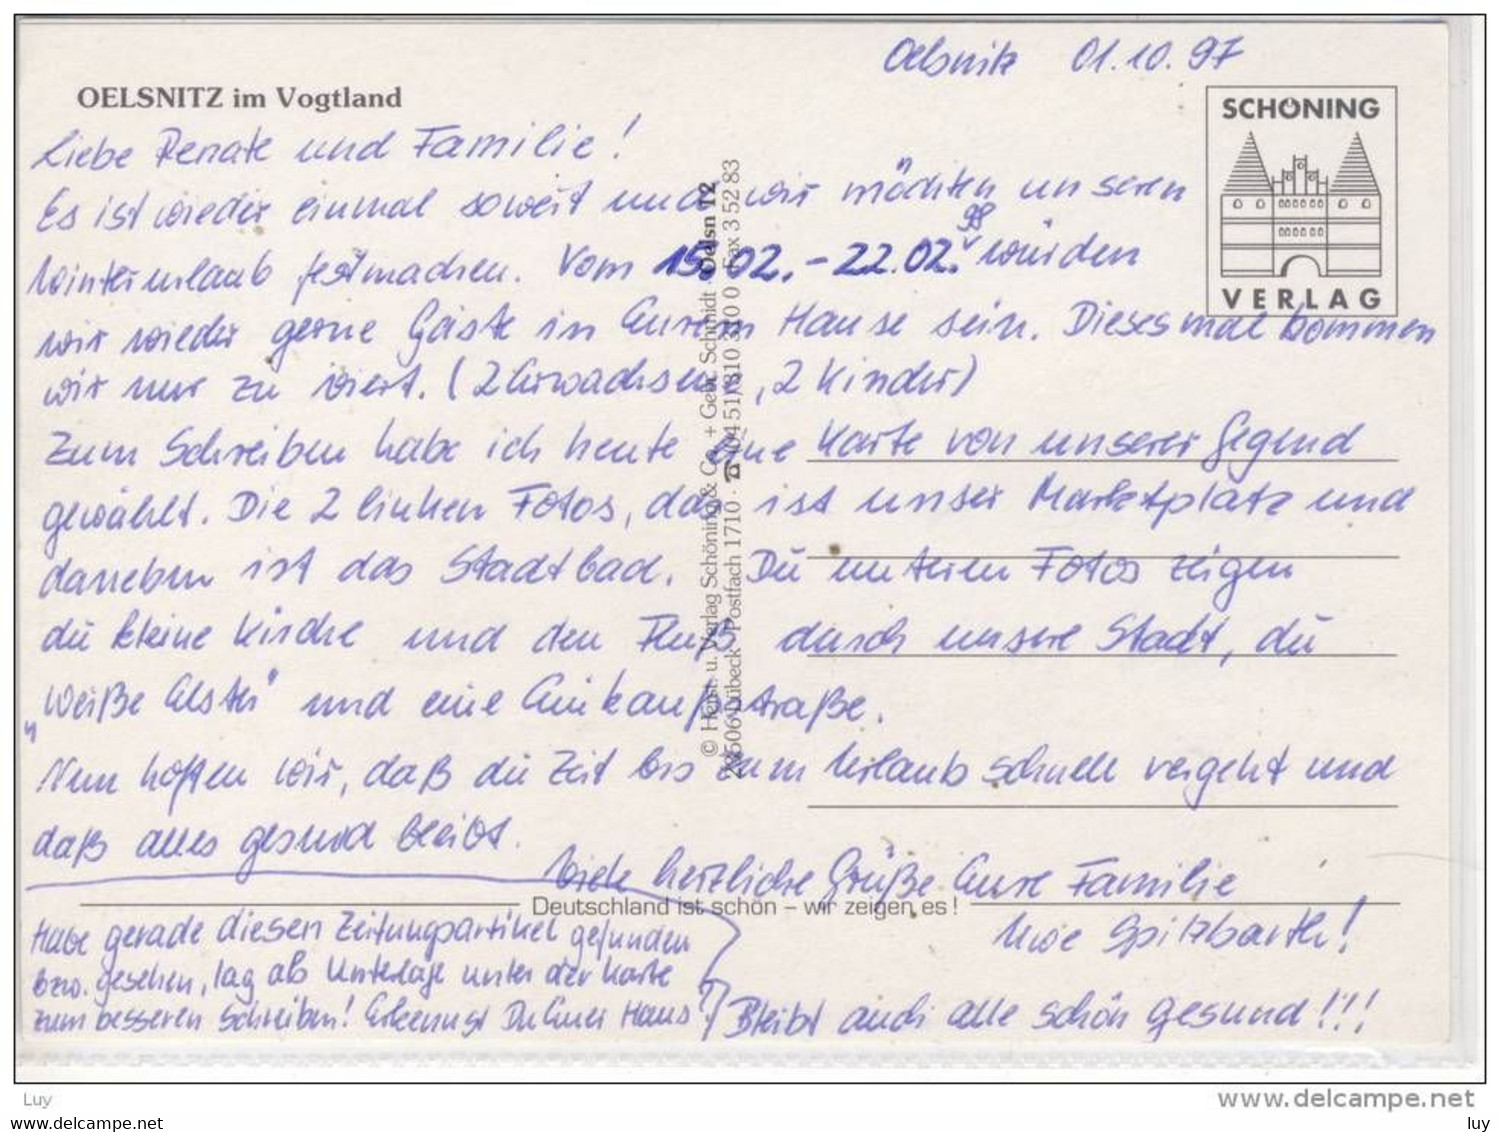 Oelsnitz 01.10.97
OELSNITZ im Vogtland
SCHÖNING
VERLAG
Liebe Renate und Familie!
Es ist wieder einmal soweit und wir möchten unseren
Winterurlaub festmachen. Vom 15.02.-22.02.98 würden
wir wieder gerne Gäste in Eurem Hause sein. Diesesmal kommen
wir nur zu viert. (2 Erwachsene, 2 Kinder)
Zum Schreiben habe ich heute eine Karte von unserer Gegend
gewählt. Die 2 linken Fotos, das ist unser Marktplatz und
daneben ist das Stadtbad. Die unteren Fotos zeigen
die kleine Kirche und den Fluß durch unsere Stadt, die
„Weiße Elster" und eine Einkaufsstraße.
Nun hoffen wir, daß die Zeit bis zum Urlaub schnell vergeht und
daß alles gesund bleibt.
Viele herzliche Grüße Eure Familie
Uwe Spitzbarth!
Deutschland ist schön – wir zeigen es!
Habe gerade diesen Zeitungsartikel gefunden
bzw. gesehen, lag als Unterlage unter der Karte
zum besseren Schreiben! Erkennst Du Euer Haus?
Bleibt auch alle schön gesund!!!
© Herst. u. Verlag Schöning & Co. + Gebr. Schmidt · Oelsn 12
23506 Lübeck · Postfach 1710 · ☎ (04 51) 310 310 0 · Fax 3 52 83
Luy
www.delcampe.net
www.delcampe.net
luy